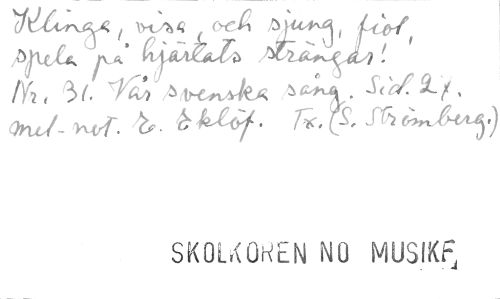 Klinga, visa, och sjung, fiol,
spela på hjärtats strängar!
Nr. 31. Vår svenska sång. Sid. 27.
mel-not. E. Eklöf. Tx. (S. Strömberg.)
SKOLKOREN NO MUSIKF,